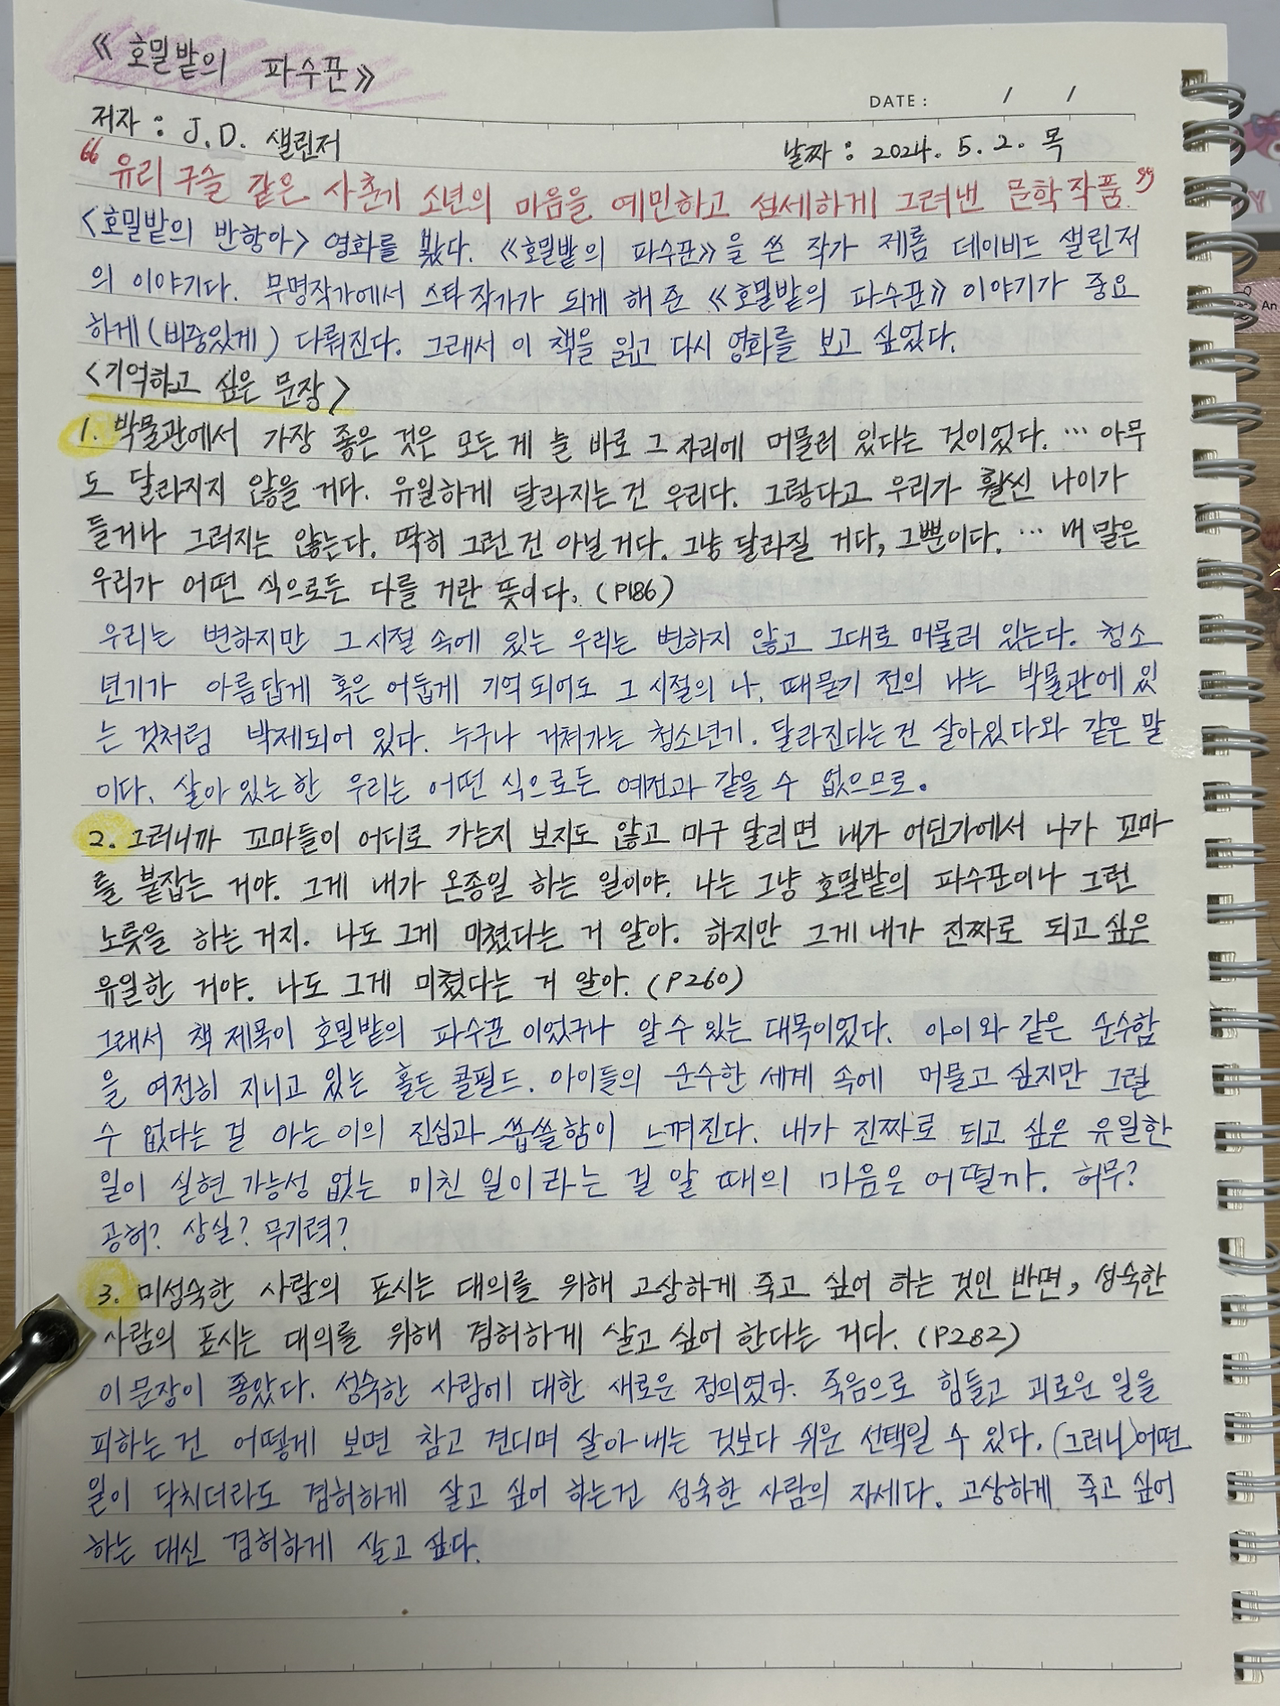 《 호밀밭의 파수꾼 》
DATE : / /
저자 : J.D. 샐린저
날짜 : 2024. 5. 2. 목
“ 유리 구슬 같은 사춘기 소년의 마음을 예민하고 섬세하게 그려낸 문학작품. ”
<호밀밭의 반항아> 영화를 봤다. 《호밀밭의 파수꾼》을 쓴 작가 제롬 데이비드 샐린저
의 이야기다. 무명작가에서 스타작가가 되게 해 준 《호밀밭의 파수꾼》 이야기가 중요
하게(비중있게) 다뤄진다. 그래서 이 책을 읽고 다시 영화를 보고 싶었다.
<기억하고 싶은 문장>
1. 박물관에서 가장 좋은 것은 모든 게 늘 바로 그 자리에 머물러 있다는 것이었다. … 아무
도 달라지지 않을 거다. 유일하게 달라지는 건 우리다. 그렇다고 우리가 훨씬 나이가
들거나 그러지는 않는다. 딱히 그런 건 아닐 거다. 그냥 달라질 거다, 그뿐이다. … 내 말은
우리가 어떤 식으로든 다를 거란 뜻이다. (P186)
우리는 변하지만 그 시절 속에 있는 우리는 변하지 않고 그대로 머물러 있는다. 청소
년기가 아름답게 혹은 어둡게 기억되어도 그 시절의 나, 때묻기 전의 나는 박물관에 있
는 것처럼 박제되어 있다. 누구나 거쳐가는 청소년기. 달라진다는 건 살아있다와 같은 말
이다. 살아 있는 한 우리는 어떤 식으로든 예전과 같을 수 없으므로.
2. 그러니까 꼬마들이 어디로 가는지 보지도 않고 마구 달리면 내가 어딘가에서 나가 꼬마
를 붙잡는 거야. 그게 내가 온종일 하는 일이야. 나는 그냥 호밀밭의 파수꾼이나 그런
노릇을 하는 거지. 나도 그게 미쳤다는 거 알아. 하지만 그게 내가 진짜로 되고 싶은
유일한 거야. 나도 그게 미쳤다는 거 알아. (P260)
그래서 책 제목이 호밀밭의 파수꾼 이었구나 알 수 있는 대목이었다. 아이와 같은 순수함
을 여전히 지니고 있는 홀든 콜필드. 아이들의 순수한 세계 속에 머물고 싶지만 그럴
수 없다는 걸 아는 이의 진심과 씁쓸함이 느껴진다. 내가 진짜로 되고 싶은 유일한
일이 실현 가능성 없는 미친 일이라는 걸 알 때의 마음은 어떨까. 허무?
공허? 상실? 무기력?
3. 미성숙한 사람의 표시는 대의를 위해 고상하게 죽고 싶어 하는 것인 반면, 성숙한
사람의 표시는 대의를 위해 겸허하게 살고 싶어 한다는 거다. (P282)
이 문장이 좋았다. 성숙한 사람에 대한 새로운 정의였다. 죽음으로 힘들고 괴로운 일을
피하는 건 어떻게 보면 참고 견디며 살아내는 것보다 쉬운 선택일 수 있다. (그러니)어떤
일이 닥치더라도 겸허하게 살고 싶어 하는건 성숙한 사람의 자세다. 고상하게 죽고 싶어
하는 대신 겸허하게 살고 싶다.